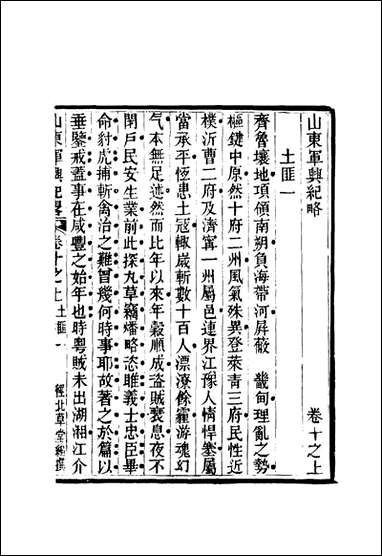 山東軍興紀略　卷十之上
土匪一
齊魯壤地項領南朔負海帶河屛蔽　畿甸理亂之勢
樞鍵中原然十府二州風氣殊異登萊青三府民性近
樸沂曹二府及濟甯一州屬邑連界江豫人情悍蹇屬
當承平恆患土寇輙歲斬數十百人漂潦倏霾游魂幻
气本無足述然而比年以來年穀順成盜賊衰息夜不
閉戸民安生業前此探丸草竊燔略恣睢義士忠臣畢
命豺虎捕斬禽治之難曾幾何時事耶故著之於篇以
垂鑒戒葢事在咸豐之始年也時粤賊未出湖湘江介
山東軍興紀畧　卷十之上　土匪一　經北草堂纂